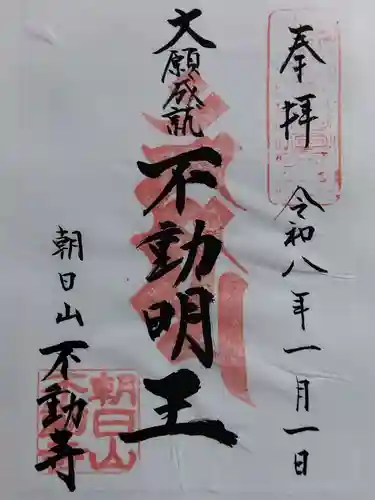 奉拝
令和八年一月一日
大願成就
不動明王
朝日山
不動寺
朝日山